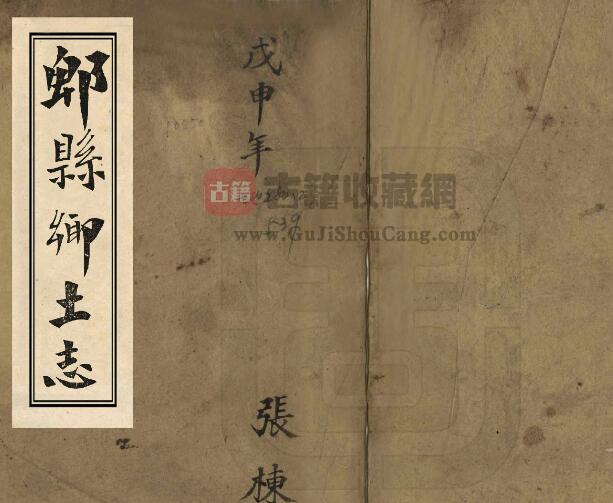 郫縣鄉土志
戊申年
張棟
古籍
古籍收藏網
www.GuJiShouCang.com